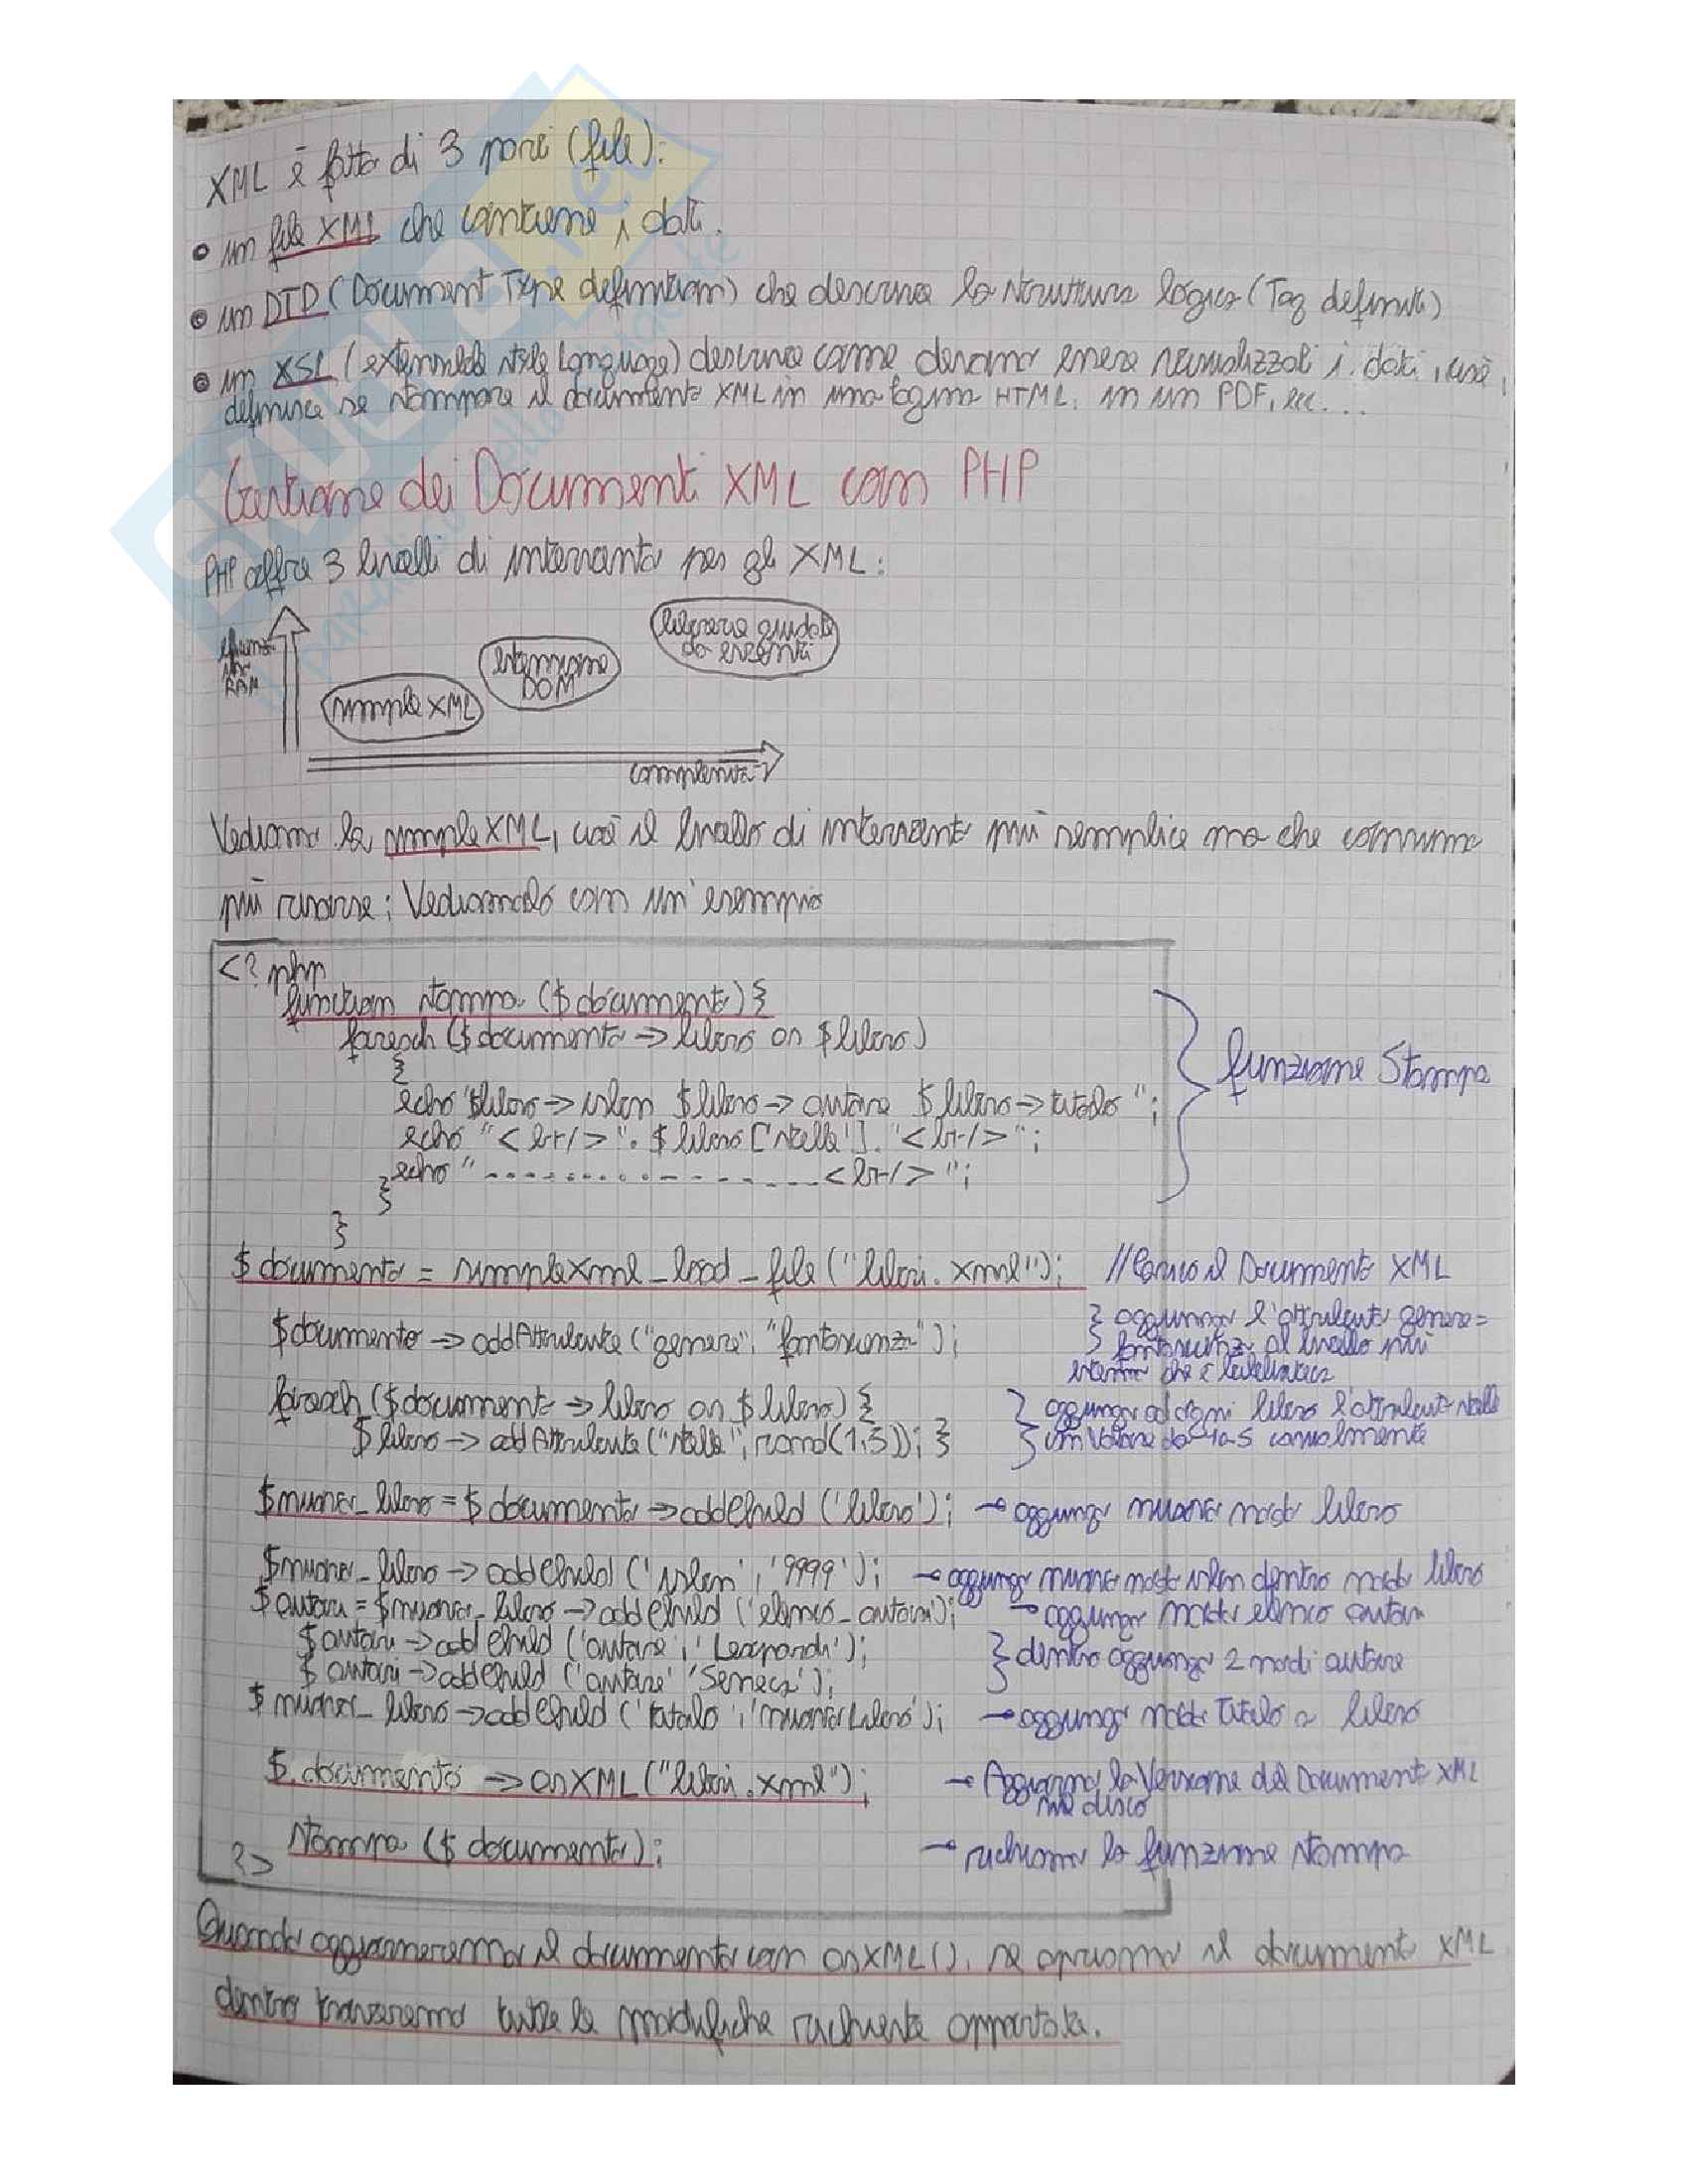 XML è fatto di 3 parti (file):
• un file XML che contiene i dati.
• un DTD (Document Type definition) che descrive la struttura logica (Tag definiti)
• un XSL (extensible style Language) descrive come devono essere visualizzati i dati, cioè
definisce se stampare il documento XML in una pagina HTML, in un PDF, ecc...
Gestione dei Documenti XML con PHP
PHP offre 3 livelli di intervento per gli XML:
librerie guidate
da eventi
estensione
DOM
RAM
simple XML
complessità
Vediamo la simpleXML, cioè il livello di intervento più semplice ma che consuma
più risorse; Vediamolo con un'esempio
<?php
function stampa ($documento){
foreach ($documento -> libro as $libro)
{
echo "$libro -> isbn $libro -> autore $libro -> titolo";
echo "<br/>". $libro['stelle']. "<br/>";
echo "-----------------<br/>";
}
}
funzione Stampa
$documento = simplexml_load_file("libri.xml"); //Carico il Documento XML
$documento -> addAttribute ("genere", "fantascienza"); } aggiungo l'attributo genere=
fantascienza al livello più
esterno che è biblioteca
foreach ($documento -> libro as $libro) { } aggiungo ad ogni libro l'attributo stelle
$libro -> addAttribute ("stelle", rand(1,5)); } un valore da 1 a 5 casualmente
$nuovo_libro = $documento -> addChild ('libro'); → aggiungo nuovo nodo libro
$nuovo_libro -> addChild ('isbn', '9999'); → aggiungo nuovo nodo isbn dentro nodo libro
$autori = $nuovo_libro -> addChild ('elenco_autori'); → aggiungo nodo elenco autori
$autori -> addChild ('autore', 'Leopardi'); } dentro aggiungo 2 nodi autore
$autori -> addChild ('autore' 'Seneca');
$nuovo_libro -> addChild ('titolo', 'nuovo Libro'); → aggiungo nodo titolo a libro
$documento -> asXML ("libri.xml"); → Aggiorna la Versione del Documento XML
nel disco
stampa ($documento); → richiamo la funzione stampa
?>
Quando aggiorneremo il documento con asXML(), se apriamo il documento XML
dentro troveremo tutte le modifiche richieste apportate.